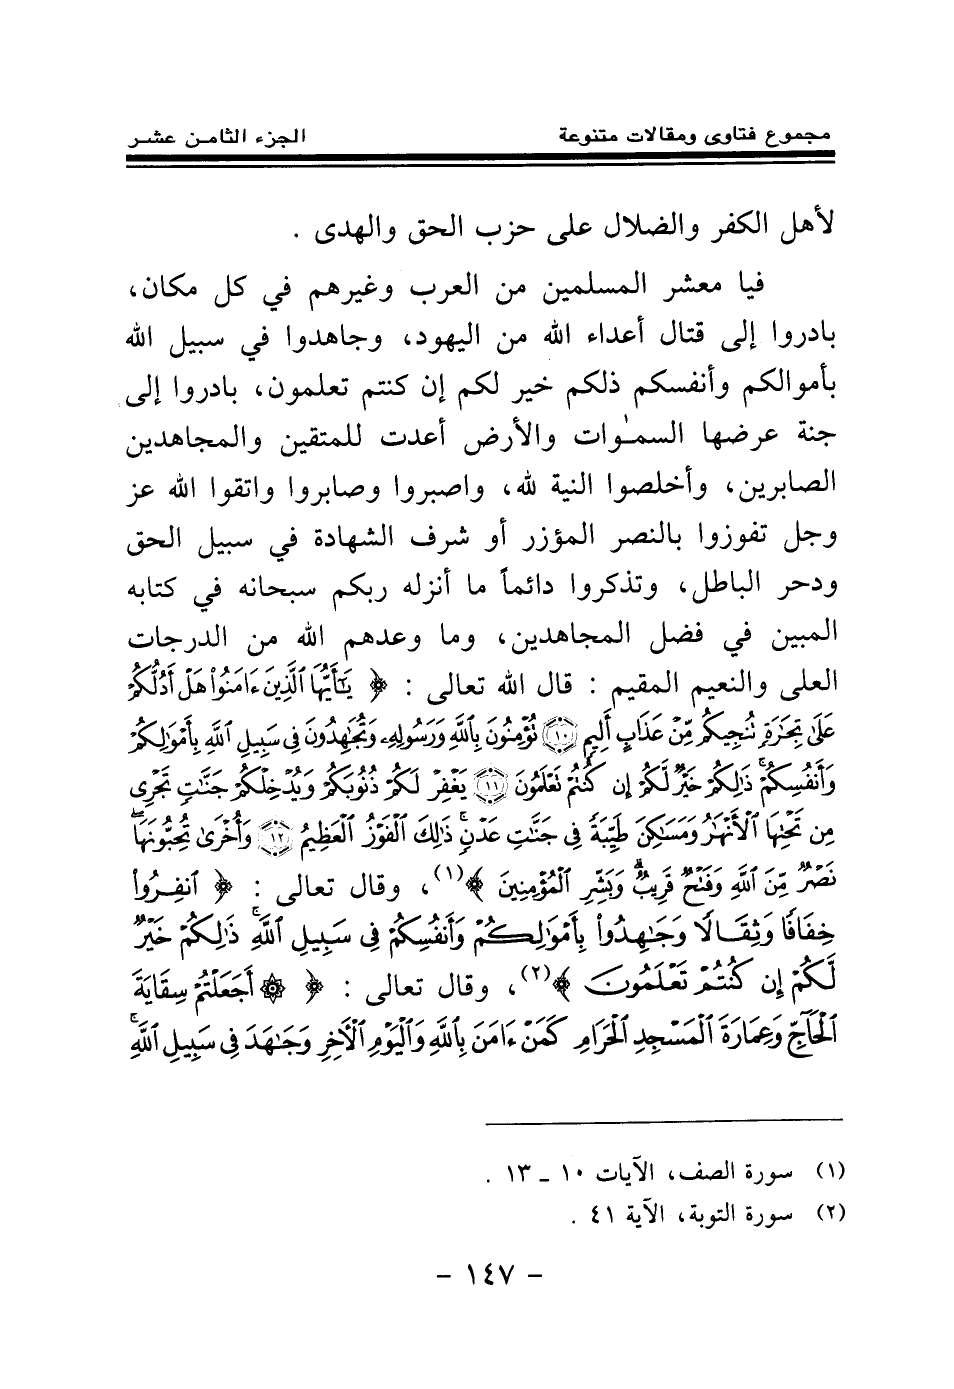 مجموع فتاوى ومقالات متنوعة الجزء الثامن عشر
لأهل الكفر والضلال على حزب الحق والهدى .
فيا معشر المسلمين من العرب وغيرهم في كل مكان،
بادروا إلى قتال أعداء الله من اليهود، وجاهدوا في سبيل الله
بأموالكم وأنفسكم ذلكم خير لكم إن كنتم تعلمون، بادروا إلى
جنة عرضها السمٰوات والأرض أعدت للمتقين والمجاهدين
الصابرين، وأخلصوا النية لله، واصبروا وصابروا واتقوا الله عز
وجل تفوزوا بالنصر المؤزر أو شرف الشهادة في سبيل الحق
ودحر الباطل، وتذكروا دائماً ما أنزله ربكم سبحانه في كتابه
المبين في فضل المجاهدين، وما وعدهم الله من الدرجات
العلى والنعيم المقيم : قال الله تعالى : ﴿ يَٰٓأَيُّهَا ٱلَّذِينَ ءَامَنُوا۟ هَلْ أَدُلُّكُمْ
عَلَىٰ تِجَٰرَةٍ تُنجِيكُم مِّنْ عَذَابٍ أَلِيمٍ ۝١٠ تُؤْمِنُونَ بِٱللَّهِ وَرَسُولِهِۦ وَتُجَٰهِدُونَ فِى سَبِيلِ ٱللَّهِ بِأَمْوَٰلِكُمْ
وَأَنفُسِكُمْ ۚ ذَٰلِكُمْ خَيْرٌ لَّكُمْ إِن كُنتُمْ تَعْلَمُونَ ۝١١ يَغْفِرْ لَكُمْ ذُنُوبَكُمْ وَيُدْخِلْكُمْ جَنَّٰتٍ تَجْرِى
مِن تَحْتِهَا ٱلْأَنْهَٰرُ وَمَسَٰكِنَ طَيِّبَةً فِى جَنَّٰتِ عَدْنٍ ۚ ذَٰلِكَ ٱلْفَوْزُ ٱلْعَظِيمُ ۝١٢ وَأُخْرَىٰ تُحِبُّونَهَا ۖ
نَصْرٌ مِّنَ ٱللَّهِ وَفَتْحٌ قَرِيبٌ ۗ وَبَشِّرِ ٱلْمُؤْمِنِينَ ﴾(١)، وقال تعالى : ﴿ ٱنفِرُوا۟
خِفَافًا وَثِقَالًا وَجَٰهِدُوا۟ بِأَمْوَٰلِكُمْ وَأَنفُسِكُمْ فِى سَبِيلِ ٱللَّهِ ۚ ذَٰلِكُمْ خَيْرٌ
لَّكُمْ إِن كُنتُمْ تَعْلَمُونَ ﴾(٢)، وقال تعالى : ﴿ ۞ أَجَعَلْتُمْ سِقَايَةَ
ٱلْحَآجِّ وَعِمَارَةَ ٱلْمَسْجِدِ ٱلْحَرَامِ كَمَنْ ءَامَنَ بِٱللَّهِ وَٱلْيَوْمِ ٱلْءَاخِرِ وَجَٰهَدَ فِى سَبِيلِ ٱللَّهِ ۚ
(١) سورة الصف، الآيات ١٠ ـ ١٣ .
(٢) سورة التوبة، الآية ٤١ .
- ١٤٧ -